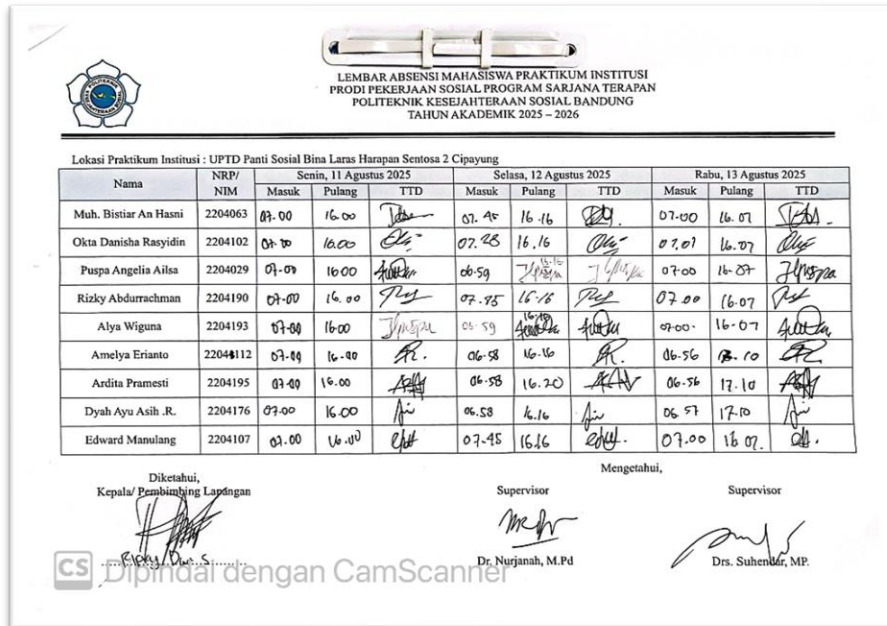 LEMBAR ABSENSI MAHASISWA PRAKTIKUM INSTITUSI
PRODI PEKERJAAN SOSIAL PROGRAM SARJANA TERAPAN
POLITEKNIK KESEJAHTERAAN SOSIAL BANDUNG
TAHUN AKADEMIK 2025 – 2026
Lokasi Praktikum Institusi : UPTD Panti Sosial Bina Laras Harapan Sentosa 2 Cipayung
Nama NRP/ NIM Senin, 11 Agustus 2025 Selasa, 12 Agustus 2025 Rabu, 13 Agustus 2025
Masuk Pulang TTD Masuk Pulang TTD Masuk Pulang TTD
Muh. Bistiar An Hasni 2204063 07.00 16.00 07.45 16.16 07.00 16.07
Okta Danisha Rasyidin 2204102 07.00 16.00 07.28 16.16 07.01 16.07
Puspa Angelia Ailsa 2204029 07-00 1600 06.59 16.16 07.00 16-07
Rizky Abdurrachman 2204190 07-00 16.00 07.45 16-16 07.00 16.07
Alya Wiguna 2204193 07-00 16-00 06.59 16-16 07-00. 16-07
Amelya Erianto 07.00 16.00 06.58 16.16 06.56
Ardita Pramesti 2204195 07-00 16.00 06.58 16.20 06-56 17.10
Dyah Ayu Asih .R. 2204176 07.00 16.00 06.58 16.16 06 57 17.10
Edward Manulang 2204107 07.00 16.00 07.45 16.16 07.00 16 07.
Diketahui,
Kepala/ Pembimbing Lapangan
Mengetahui,
Supervisor Supervisor
Dr. Nurjanah, M.Pd Drs. Suhendar, MP.
CS Dipindai dengan CamScanner